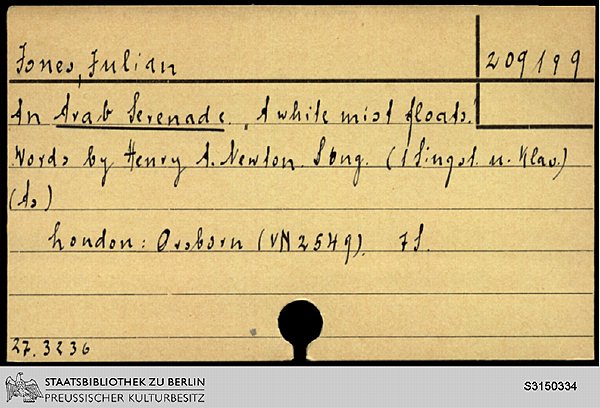 Jones, Julian
209199
An Arab Serenade. „A white mist floats.“
Words by Henry A. Newton. Song. (1 Singst. u. Klav.)
(As)
London: Orsborn (VN 2549). 7 S.
27.3236
STAATSBIBLIOTHEK ZU BERLIN
PREUSSISCHER KULTURBESITZ
S3150334